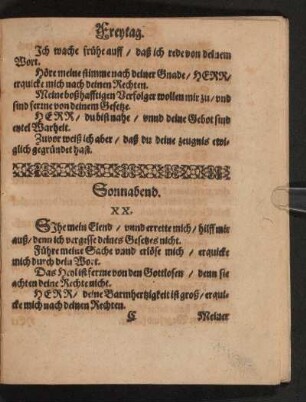 Freytag.
Ich wache frühe auff / daß ich rede von deinem
Wort.
Höre meine stimme nach deiner Gnade / HERR /
erquicke mich nach deinen Rechten.
Meine boßhafftigen Verfolger wollen mir zu / vnd
sind ferrne von deinem Gesetze.
HERR / du bist nahe / vnnd deine Gebot sind
eytel Warheit.
Zuvor weiß ich aber / daß du deine zeugnis ewi-
glich gegründet hast.
Sonnabend.
XX.
SIhe mein Elend / vnnd errette mich / hilff mir
auß / denn ich vergisse deines Gesetzes nicht.
Führe meine Sache vnnd erlöse mich / erquicke
mich durch dein Wort.
Das Heyl ist ferrne von den Gottlosen / denn sie
achten deine Rechte nicht.
HERR / deine Barmhertzigkeit ist groß / erqui-
cke mich nach deinen Rechten.
C Meiner